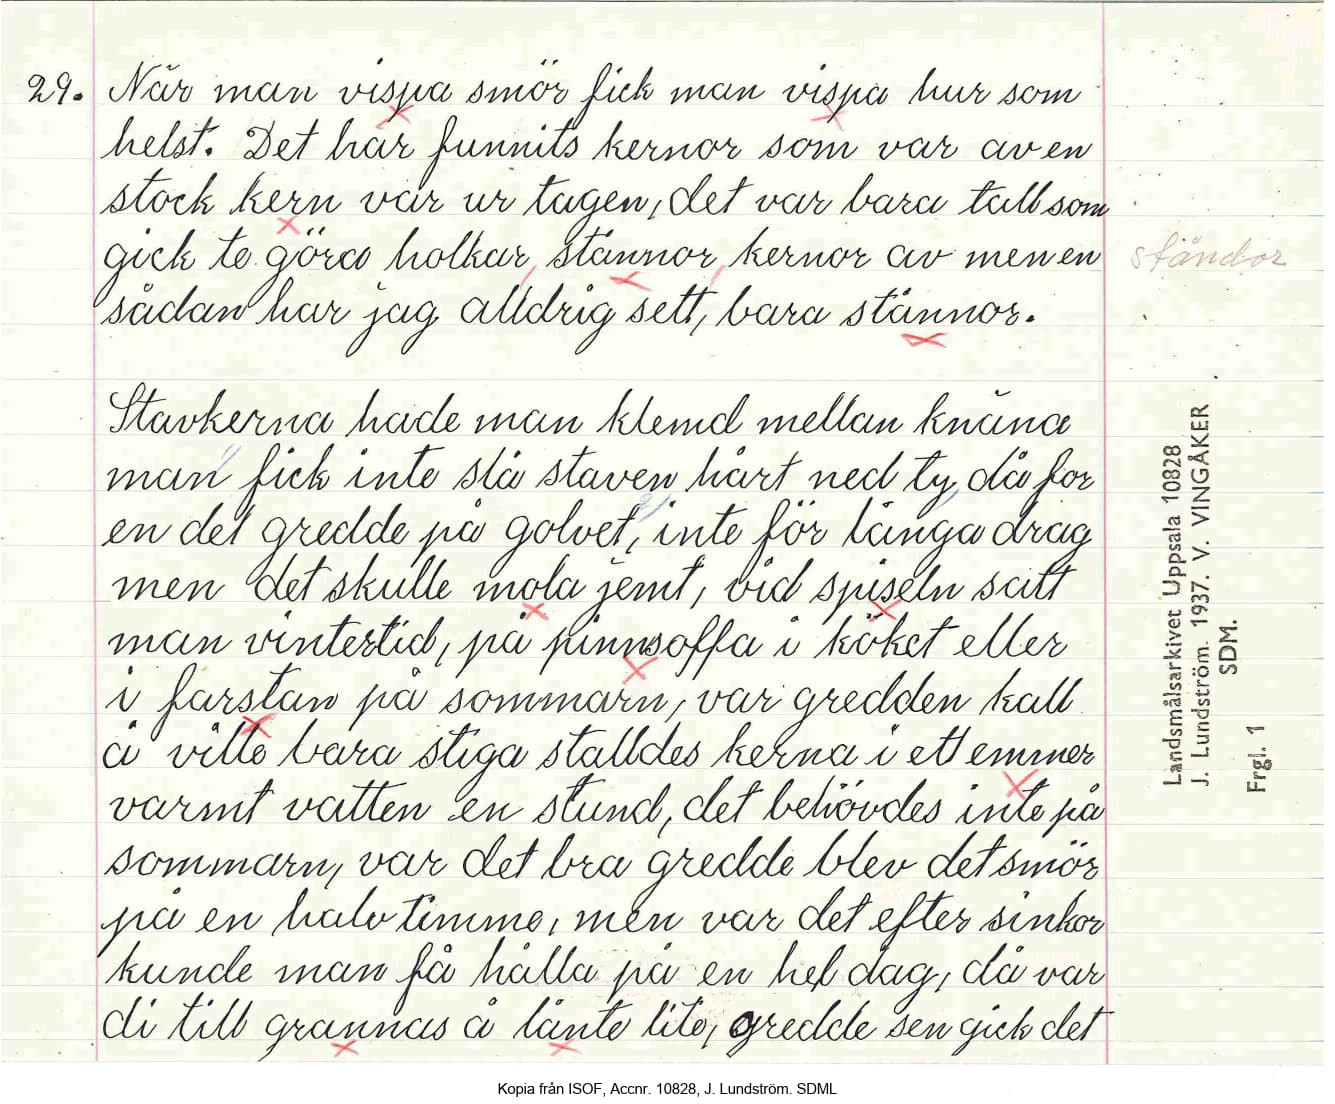 29. När man vispa smör fick man vispa hur som
helst. Det har funnits kernor som var av en
stock kern var ur tagen, det var bara tall som
gick te göra holkar, stånnor, kernor av men en
ståndor
sådan har jag alldrig sett, bara stånnor.
Stavkerna hade man klemd mellan knäna
man fick inte slå staven hårt ned ty, då for
en del gredde på golvet, inte för långa drag
men det skulle mola jemt, vid spiseln satt
man vintertid, på pinnsoffa i köket eller
i farstan på sommarn, var gredden kall
å ville bara stiga stalldes kerna i ett emmer
varmt vatten en stund, det behövdes inte på
sommarn, var det bra gredde blev det smör
på en halv timme, men var det efter sinkor
kunde man få hålla på en hel dag, då var
di till grannas å lånte lite, gredde sen gick det
Landsmålsarkivet Uppsala 10828
J. Lundström. 1937. V. VINGÅKER
SDM.
Frgl. 1
Kopia från ISOF, Accnr. 10828, J. Lundström. SDML